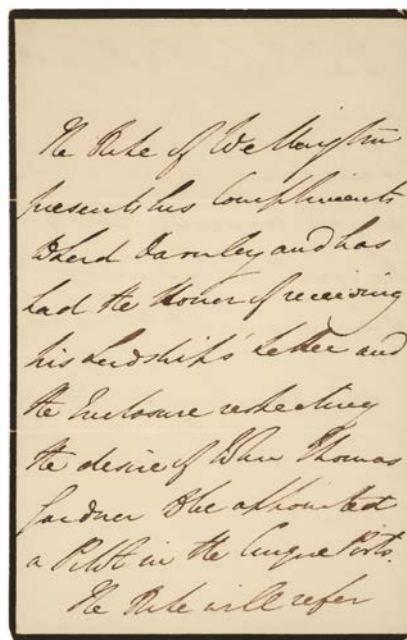 The Duke of Wellington
presents his Compliments
to Lord Darnley and has
had the Honor of receiving
his Lordship's Letter and
the Enclosure respecting
the desire of John Thomas
Gardner to be appointed
a Pilot in the Cinque Ports.
The Duke will refer